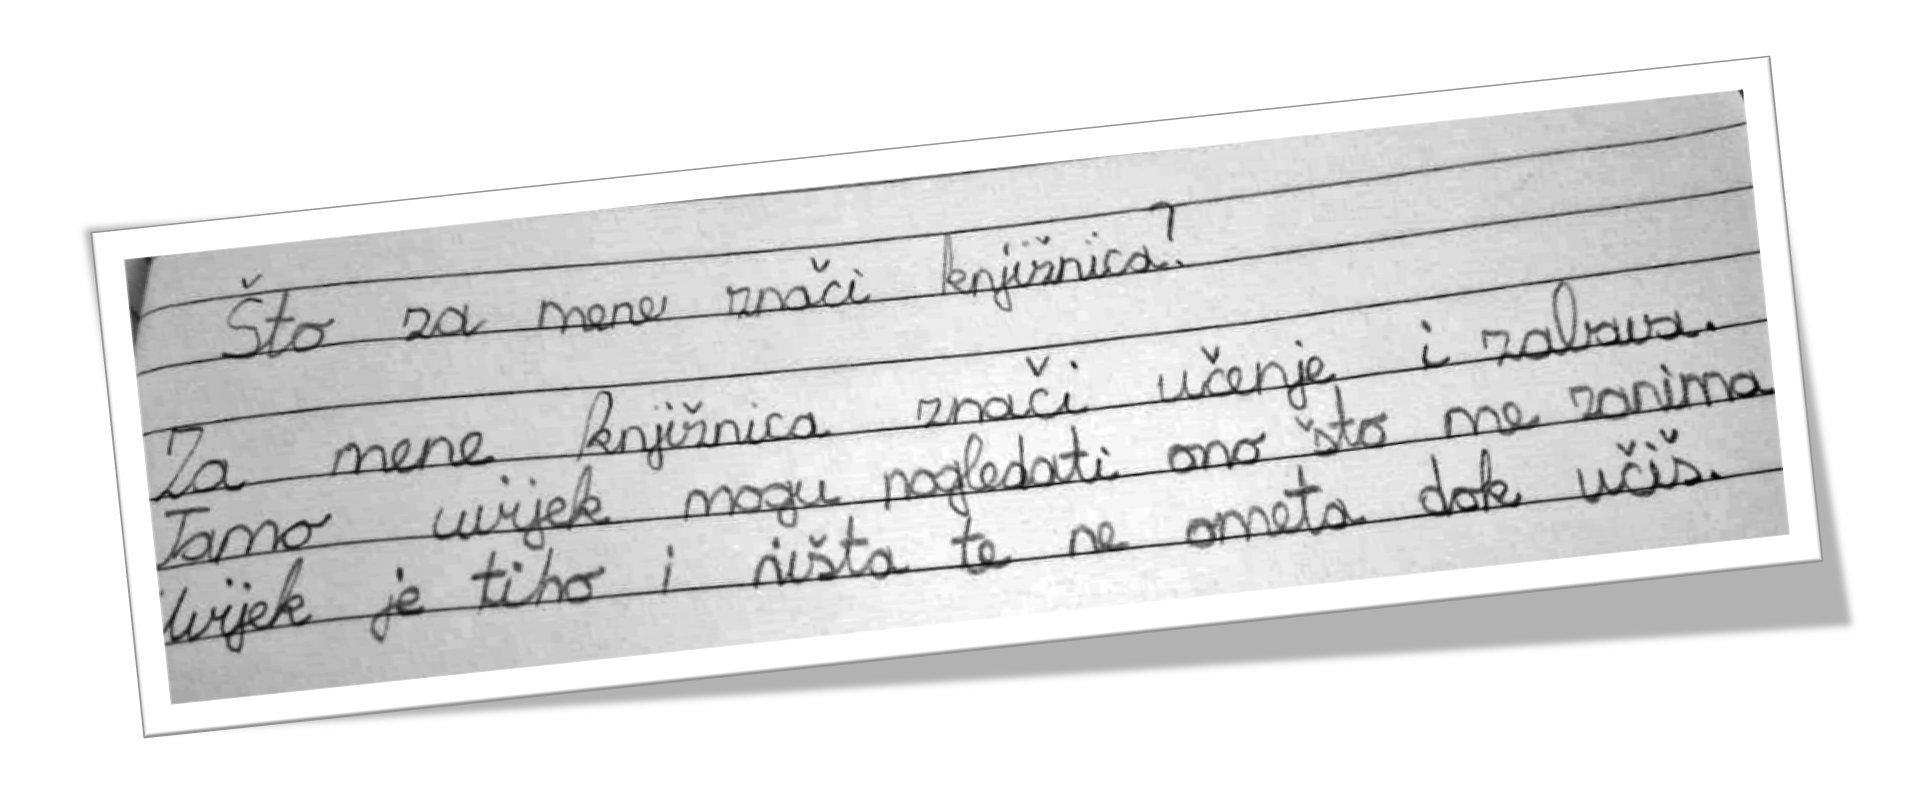 Što za mene znači knjižnica?
Za mene knjižnica znači učenje i zabava.
Tamo uvijek mogu pogledati ono što me zanima
Uvijek je tiho i ništa te ne ometa dok učiš.